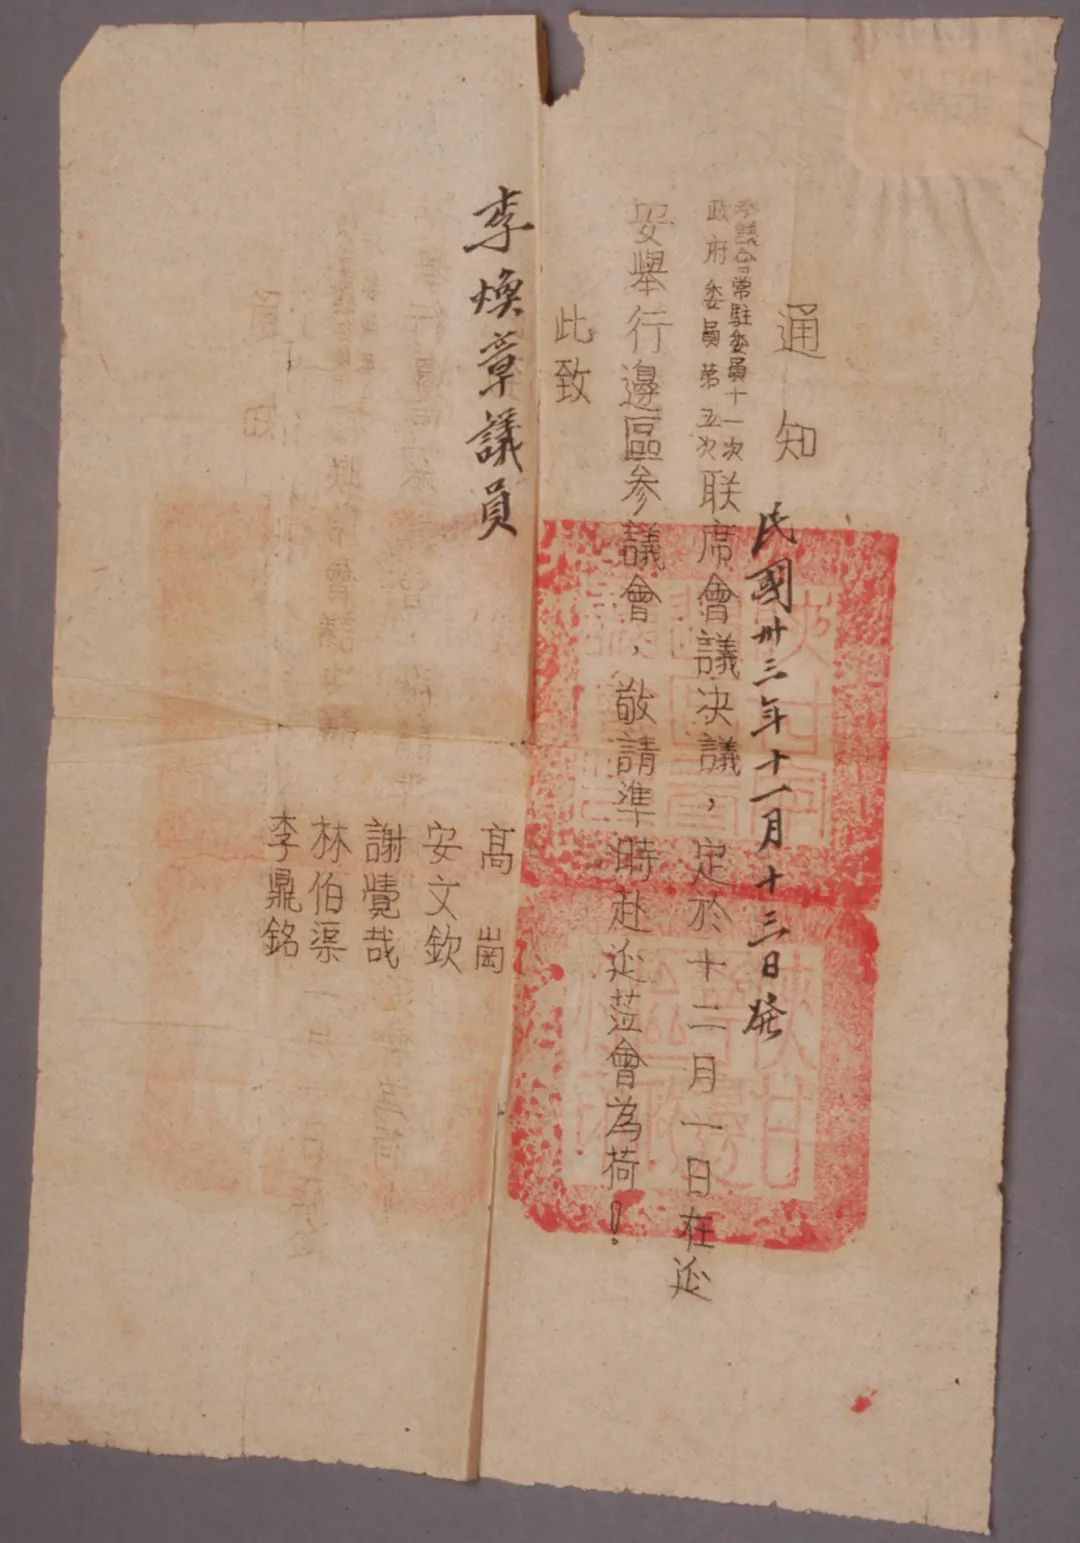 通知
民國卅三年十一月十三日發
參議會常駐委員十一次
政府委員第五次
联席會議決議，定於十二月一日在延
安舉行邊區参議會，敬請準時赴延蒞會為荷！
此致
李煥章議員
高崗
安文欽
謝覺哉
林伯渠
李鼎銘